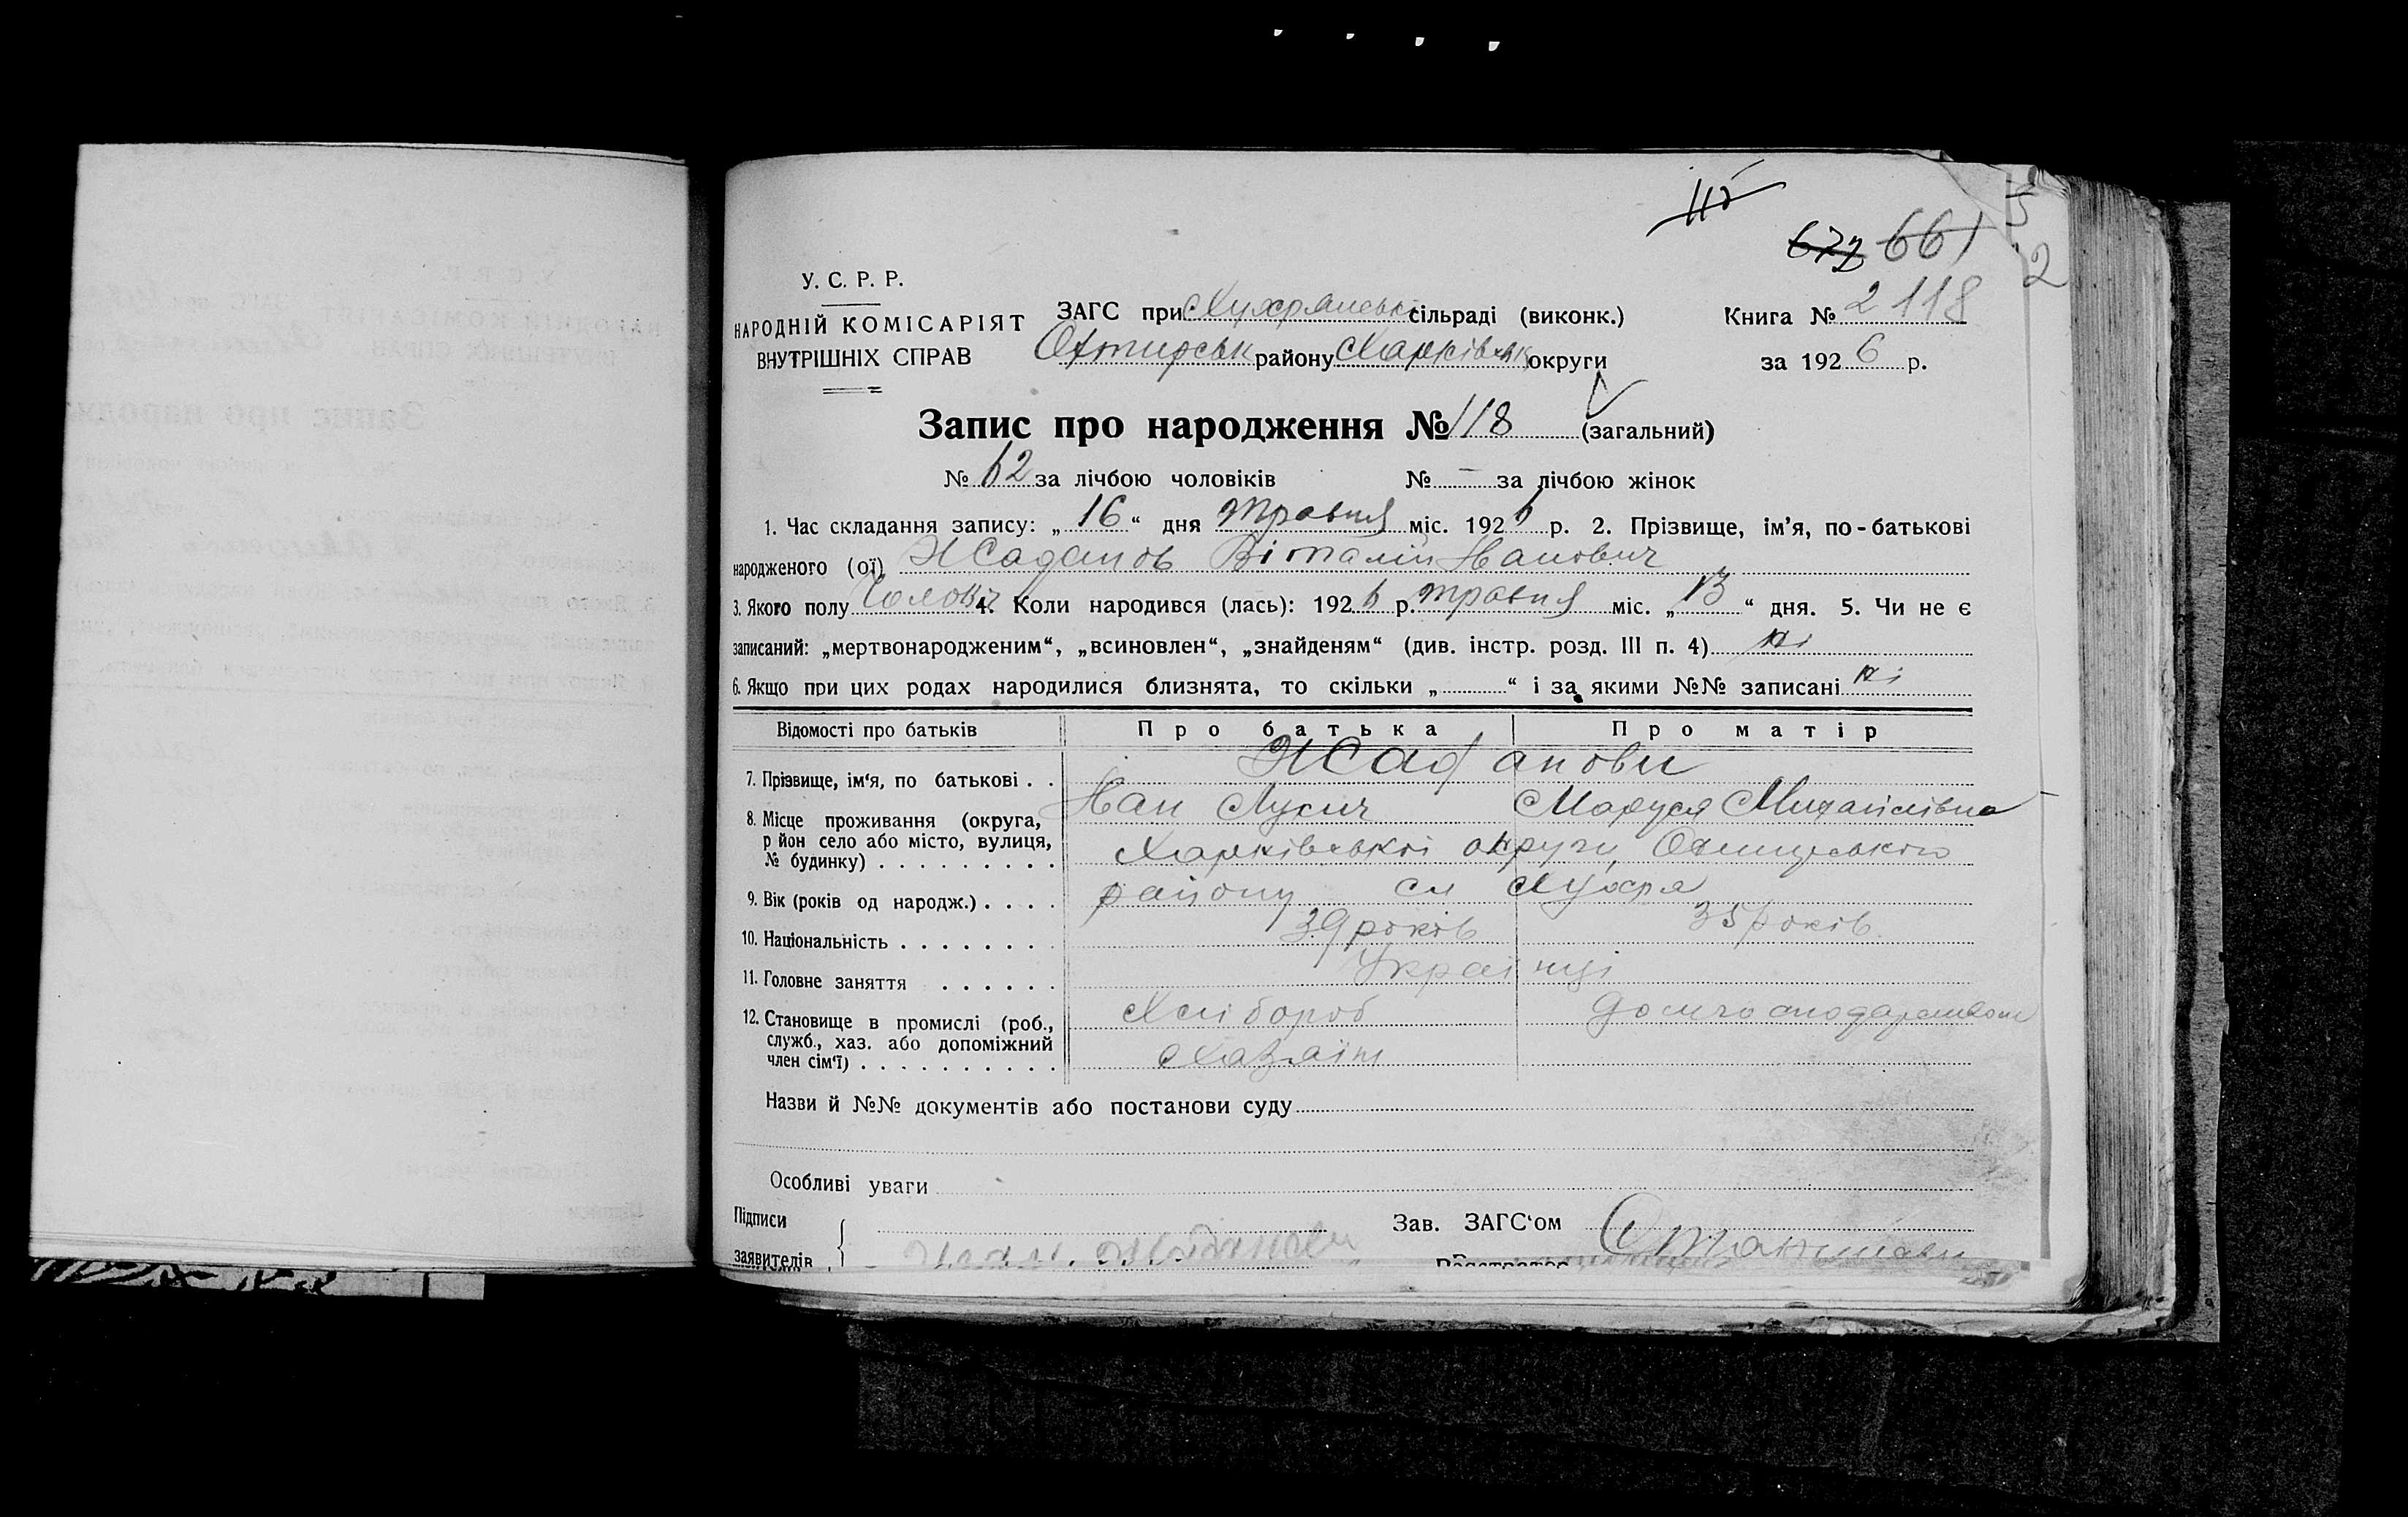 115
677 661
5
2
У. С. Р. Р.
НАРОДНІЙ КОМІСАРІЯТ
ВНУТРІШНІХ СПРАВ
ЗАГС при Хухрянськ сільраді (виконк.)
Охтирськ району Харківськ округи
Книга № 2 118
за 1926 р.
Запис про народження № 118 (загальний)
№ 62 за лічбою чоловіків № — за лічбою жінок
1. Час складання запису: „16“ дня травня міс. 1926 р. 2. Прізвище, ім’я, по-батькові
народженого (ої) Жаданов Віталій Іванович
3. Якого полу чоловіч 4. Коли народився (лась): 1926 р. травня міс. „13“ дня. 5. Чи не є
записаний: „мертвонародженим“, „всиновлен“, „знайденям“ (див. інстр. розд. III п. 4) ні
6. Якщо при цих родах народилися близнята, то скільки „ “ і за якими №№ записані ні
Відомості про батьків Про батька Про матір
7. Прізвище, ім‘я, по батькові . . Жаданови
Іван Лукич Маруся Михайлівна
8. Місце проживання (округа,
р йон село або місто, вулиця,
№ будинку) . . . . . . . . . Харківської округи, Охтирського
району см Хухря
9. Вік (років од народж.) . . . . 39 років 35 років
10. Національність . . . . . . . . Українці
11. Головне заняття . . . . . . Хлібороб Домгосподарством
12. Становище в промислі (роб.,
служб., хаз. або допоміжний
член сім‘ї) . . . . . . . . . . Хазяїн
Назви й №№ документів або постанови суду
Особливі уваги
Підписи
заявителів
Зав. ЗАГС‘ом
Реєстратор